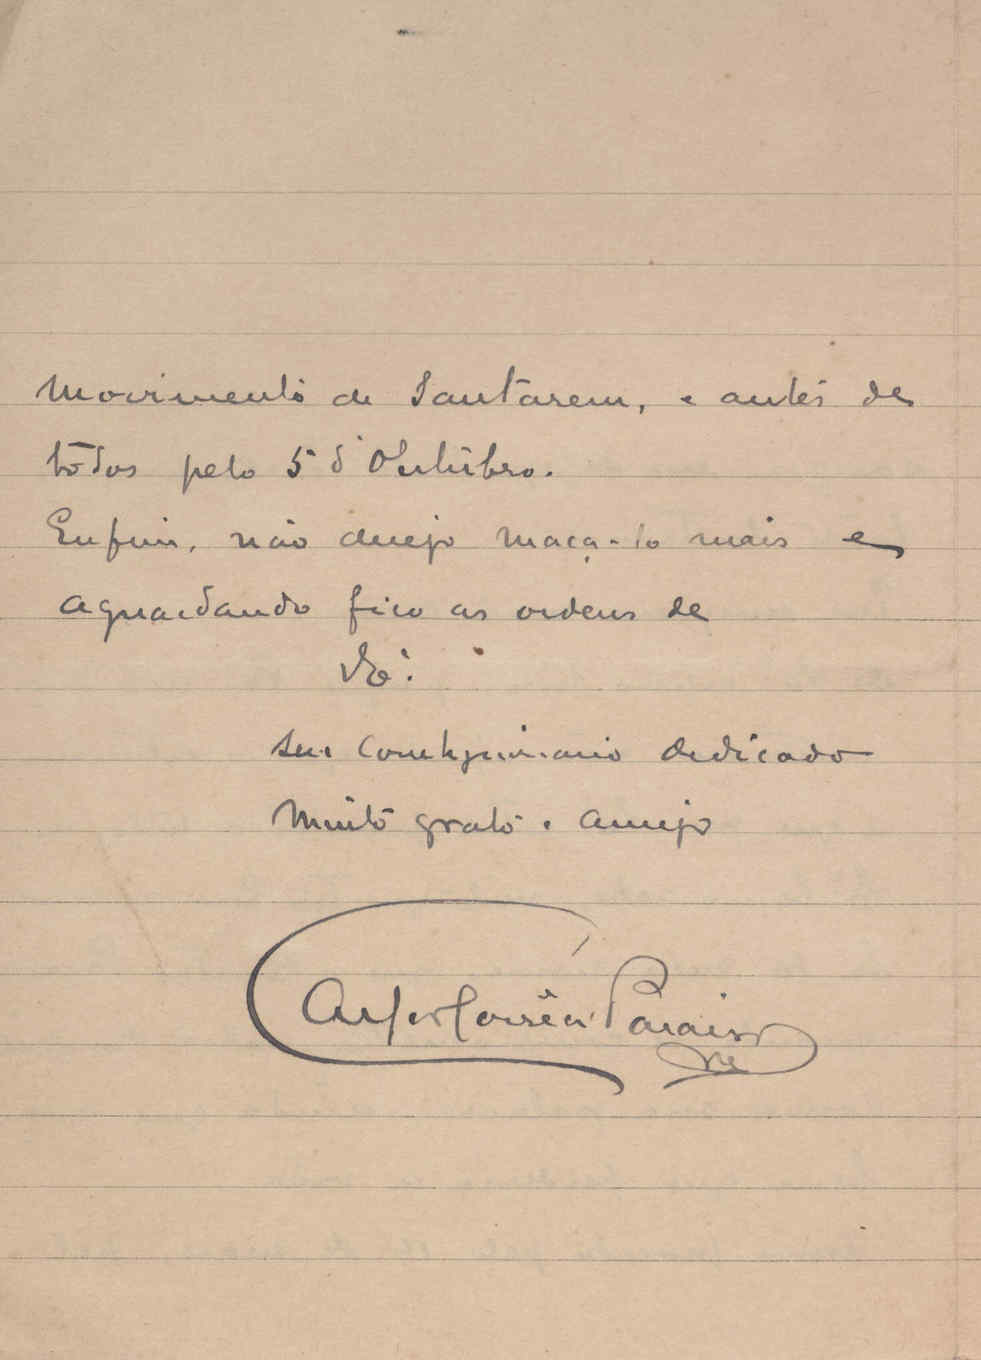 Movimento de Santarem, e antes de
todos pelo 5 d'Outubro.
Enfim, não desejo maça-lo mais e
aguardando fico as ordens de
V. Exª.
seu correligionario dedicado
Muito grato e amigo
Corrêa Paraiso